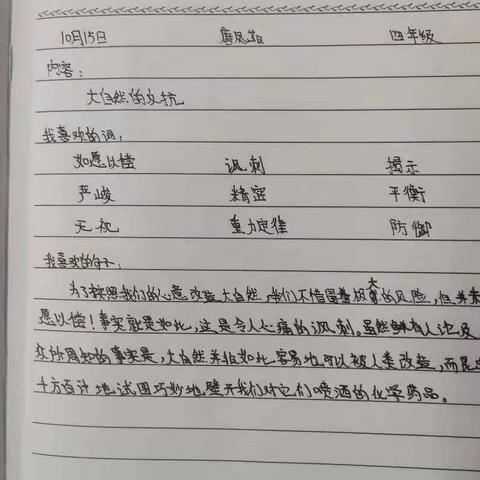 10月15日 唐凤姐 四年级
内容:
大自然的反抗
我喜欢的词:
如愿以偿 讽刺 揭示
严峻 精密 平衡
无视 重力定律 防御
我喜欢的句子:
为了按照我们的心意改造大自然,我们不惜冒着极大的风险,但并未
愿以偿!事实就是如此,这是令人心痛的讽刺。虽然鲜有人论及
众所周知的事实是,大自然并非如此容易地可以被人类改造,而昆虫
千方百计地试图巧妙地避开我们对它们喷洒的化学药品。